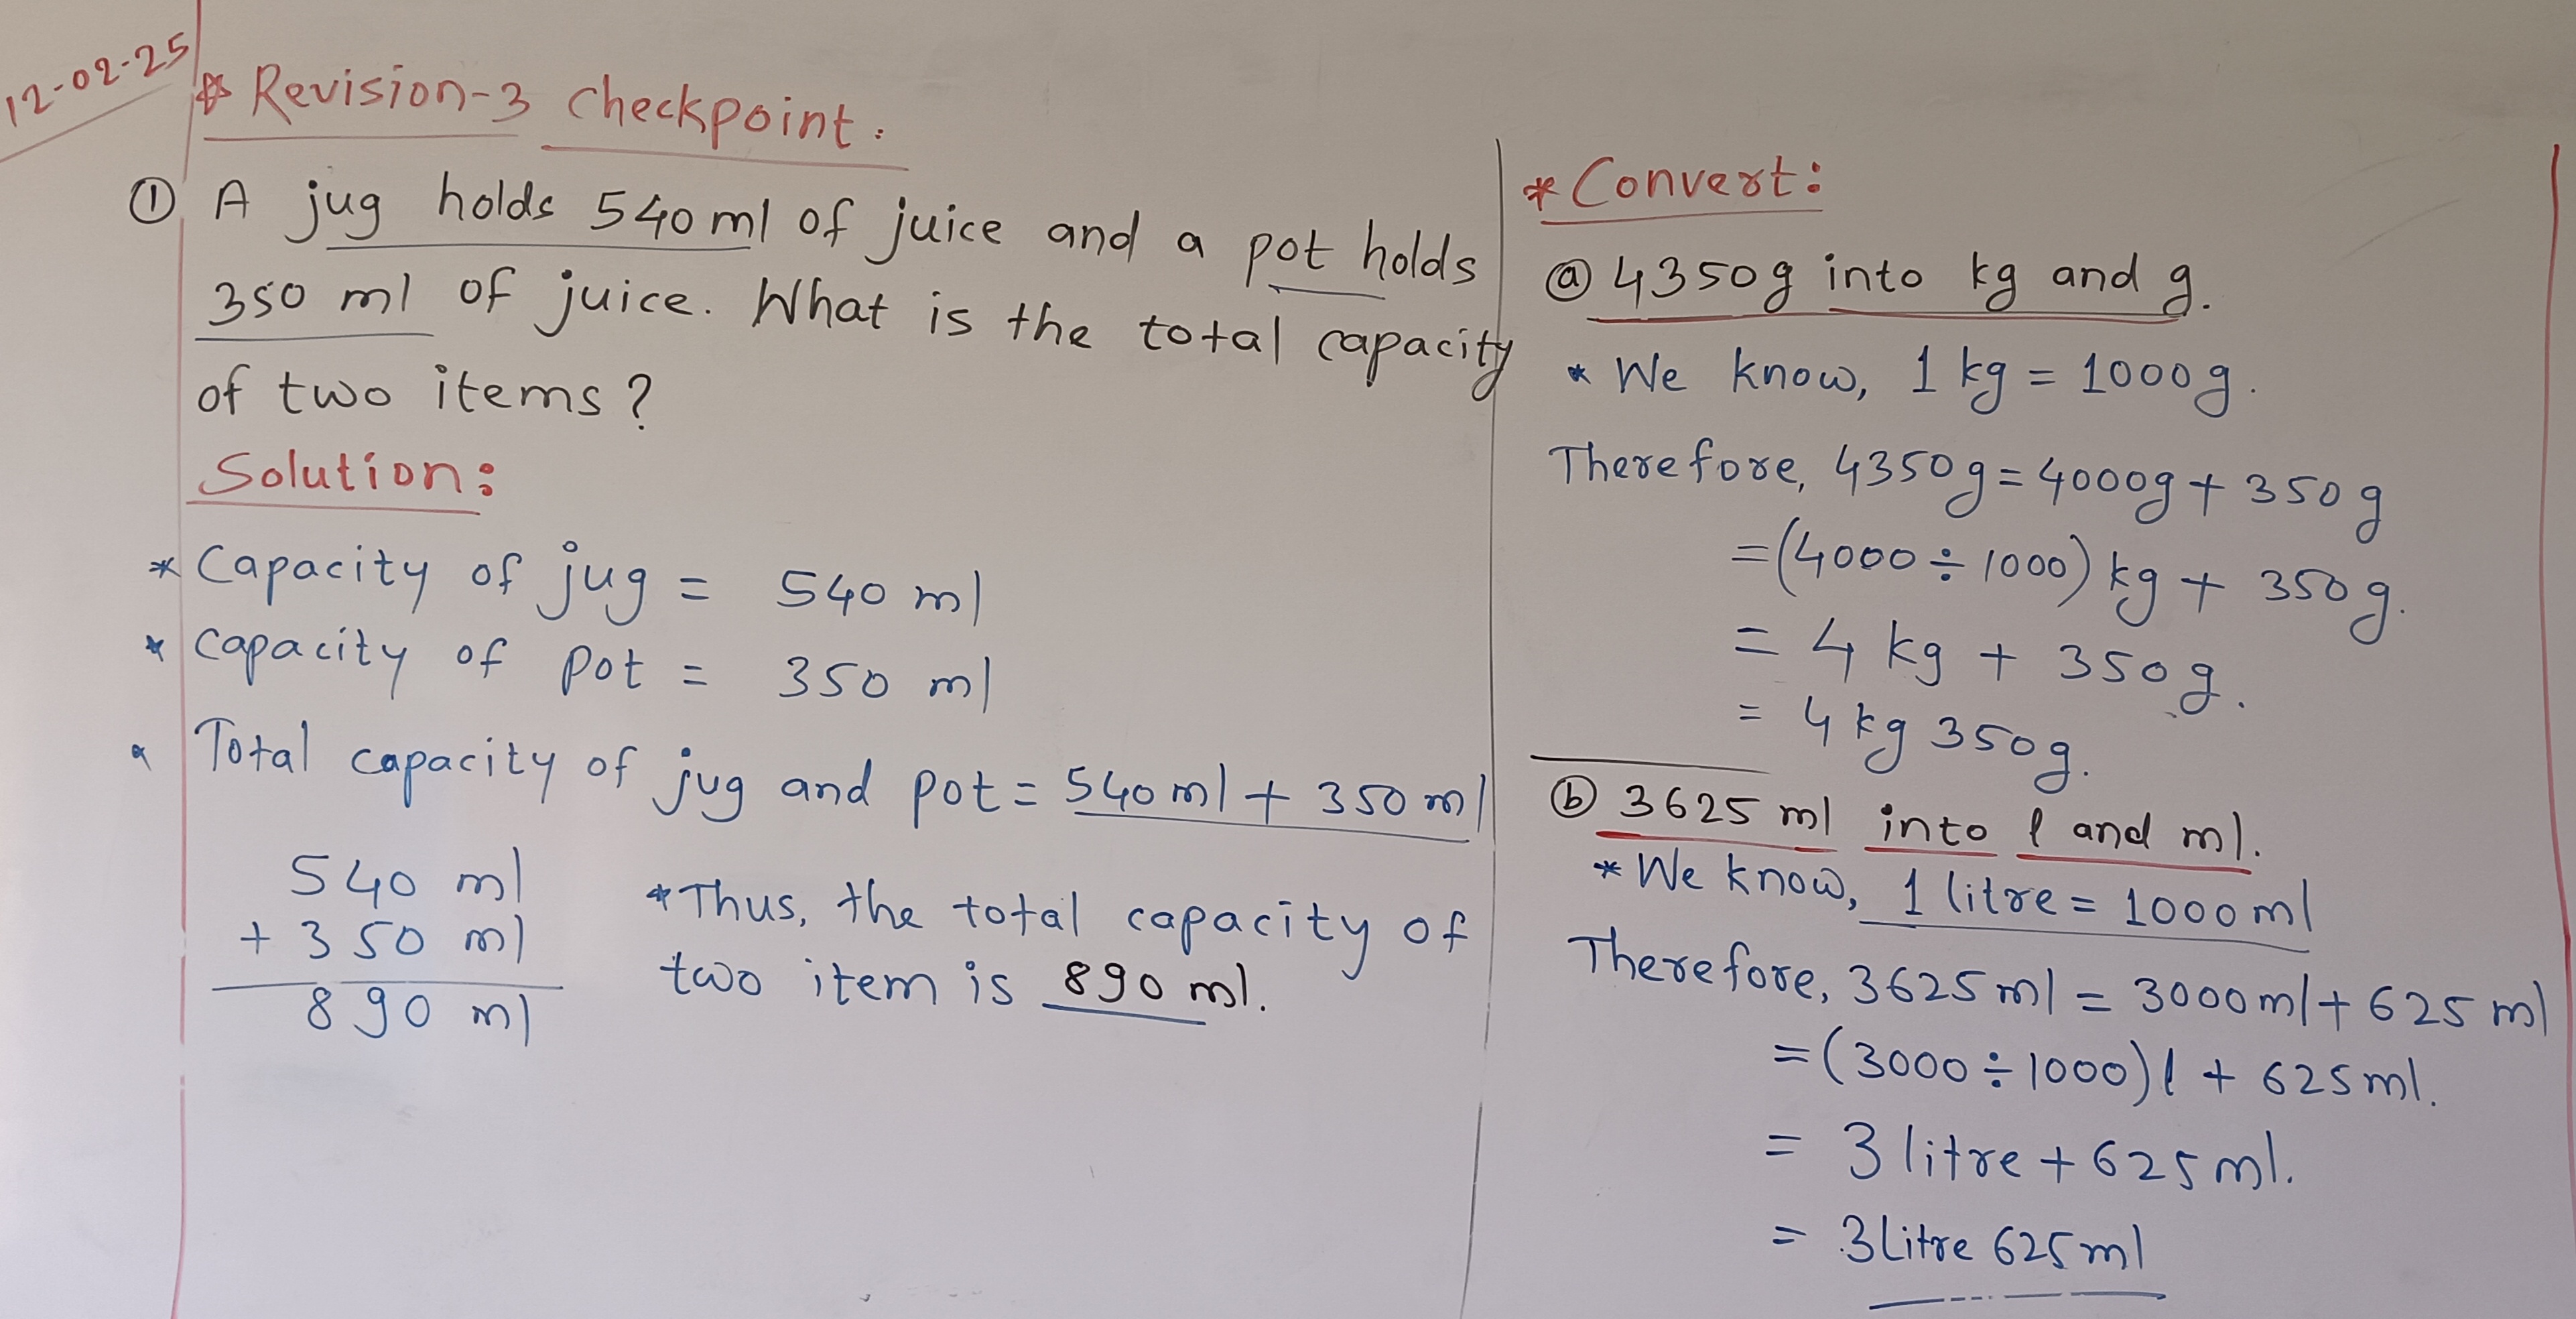 12-02-25
* Revision-3 checkpoint.
① A jug holds 540 ml of juice and a pot holds
350 ml of juice. What is the total capacity
of two items?
Solution:
* Capacity of jug = 540 ml
* Capacity of pot = 350 ml
* Total capacity of jug and pot = 540 ml + 350 ml
540 ml
+ 350 ml
890 ml
* Thus, the total capacity of
two item is 890 ml.
* Convert:
ⓐ 4350g into kg and g.
* We know, 1 kg = 1000g.
Therefore, 4350g = 4000g + 350g
= (4000 ÷ 1000) kg + 350g.
= 4 kg + 350g.
= 4 kg 350g.
ⓑ 3625 ml into l and ml.
* We know, 1 litre = 1000 ml
Therefore, 3625 ml = 3000 ml + 625 ml
= (3000 ÷ 1000) l + 625 ml.
= 3 litre + 625 ml.
= 3 Litre 625 ml